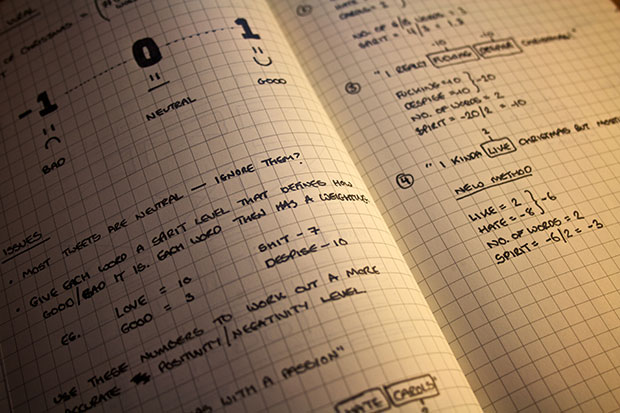 OF CHRISTMAS =
-1 0 1
BAD NEUTRAL GOOD
ISSUES
• MOST TWEETS ARE NEUTRAL — IGNORE THEM?
• GIVE EACH WORD A SPIRIT LEVEL THAT DEFINES HOW
GOOD/BAD IT IS. EACH WORD THEN HAS A WEIGHTING
EG. LOVE = 10 SHIT - 7
GOOD = 3 DESPISE - 10
USE THESE NUMBERS TO WORK OUT A MORE
ACCURATE POSITIVITY/NEGATIVITY LEVEL
WITH A PASSION"
HATE CAROLS
NO. OF WORDS = 3
SPIRIT = 4/3 = 1.3
-10 -10
③ "I REALLY FUCKING DESPISE CHRISTMAS!"
FUCKING = -10 } -20
DESPISE = -10
NO. OF WORDS = 2
SPIRIT = -20/2 = -10
2
④ "I KINDA LIKE CHRISTMAS BUT
NEW METHOD
LIKE = 2 } -6
HATE = -8
NO. OF WORDS = 2
SPIRIT = -6/2 = -3